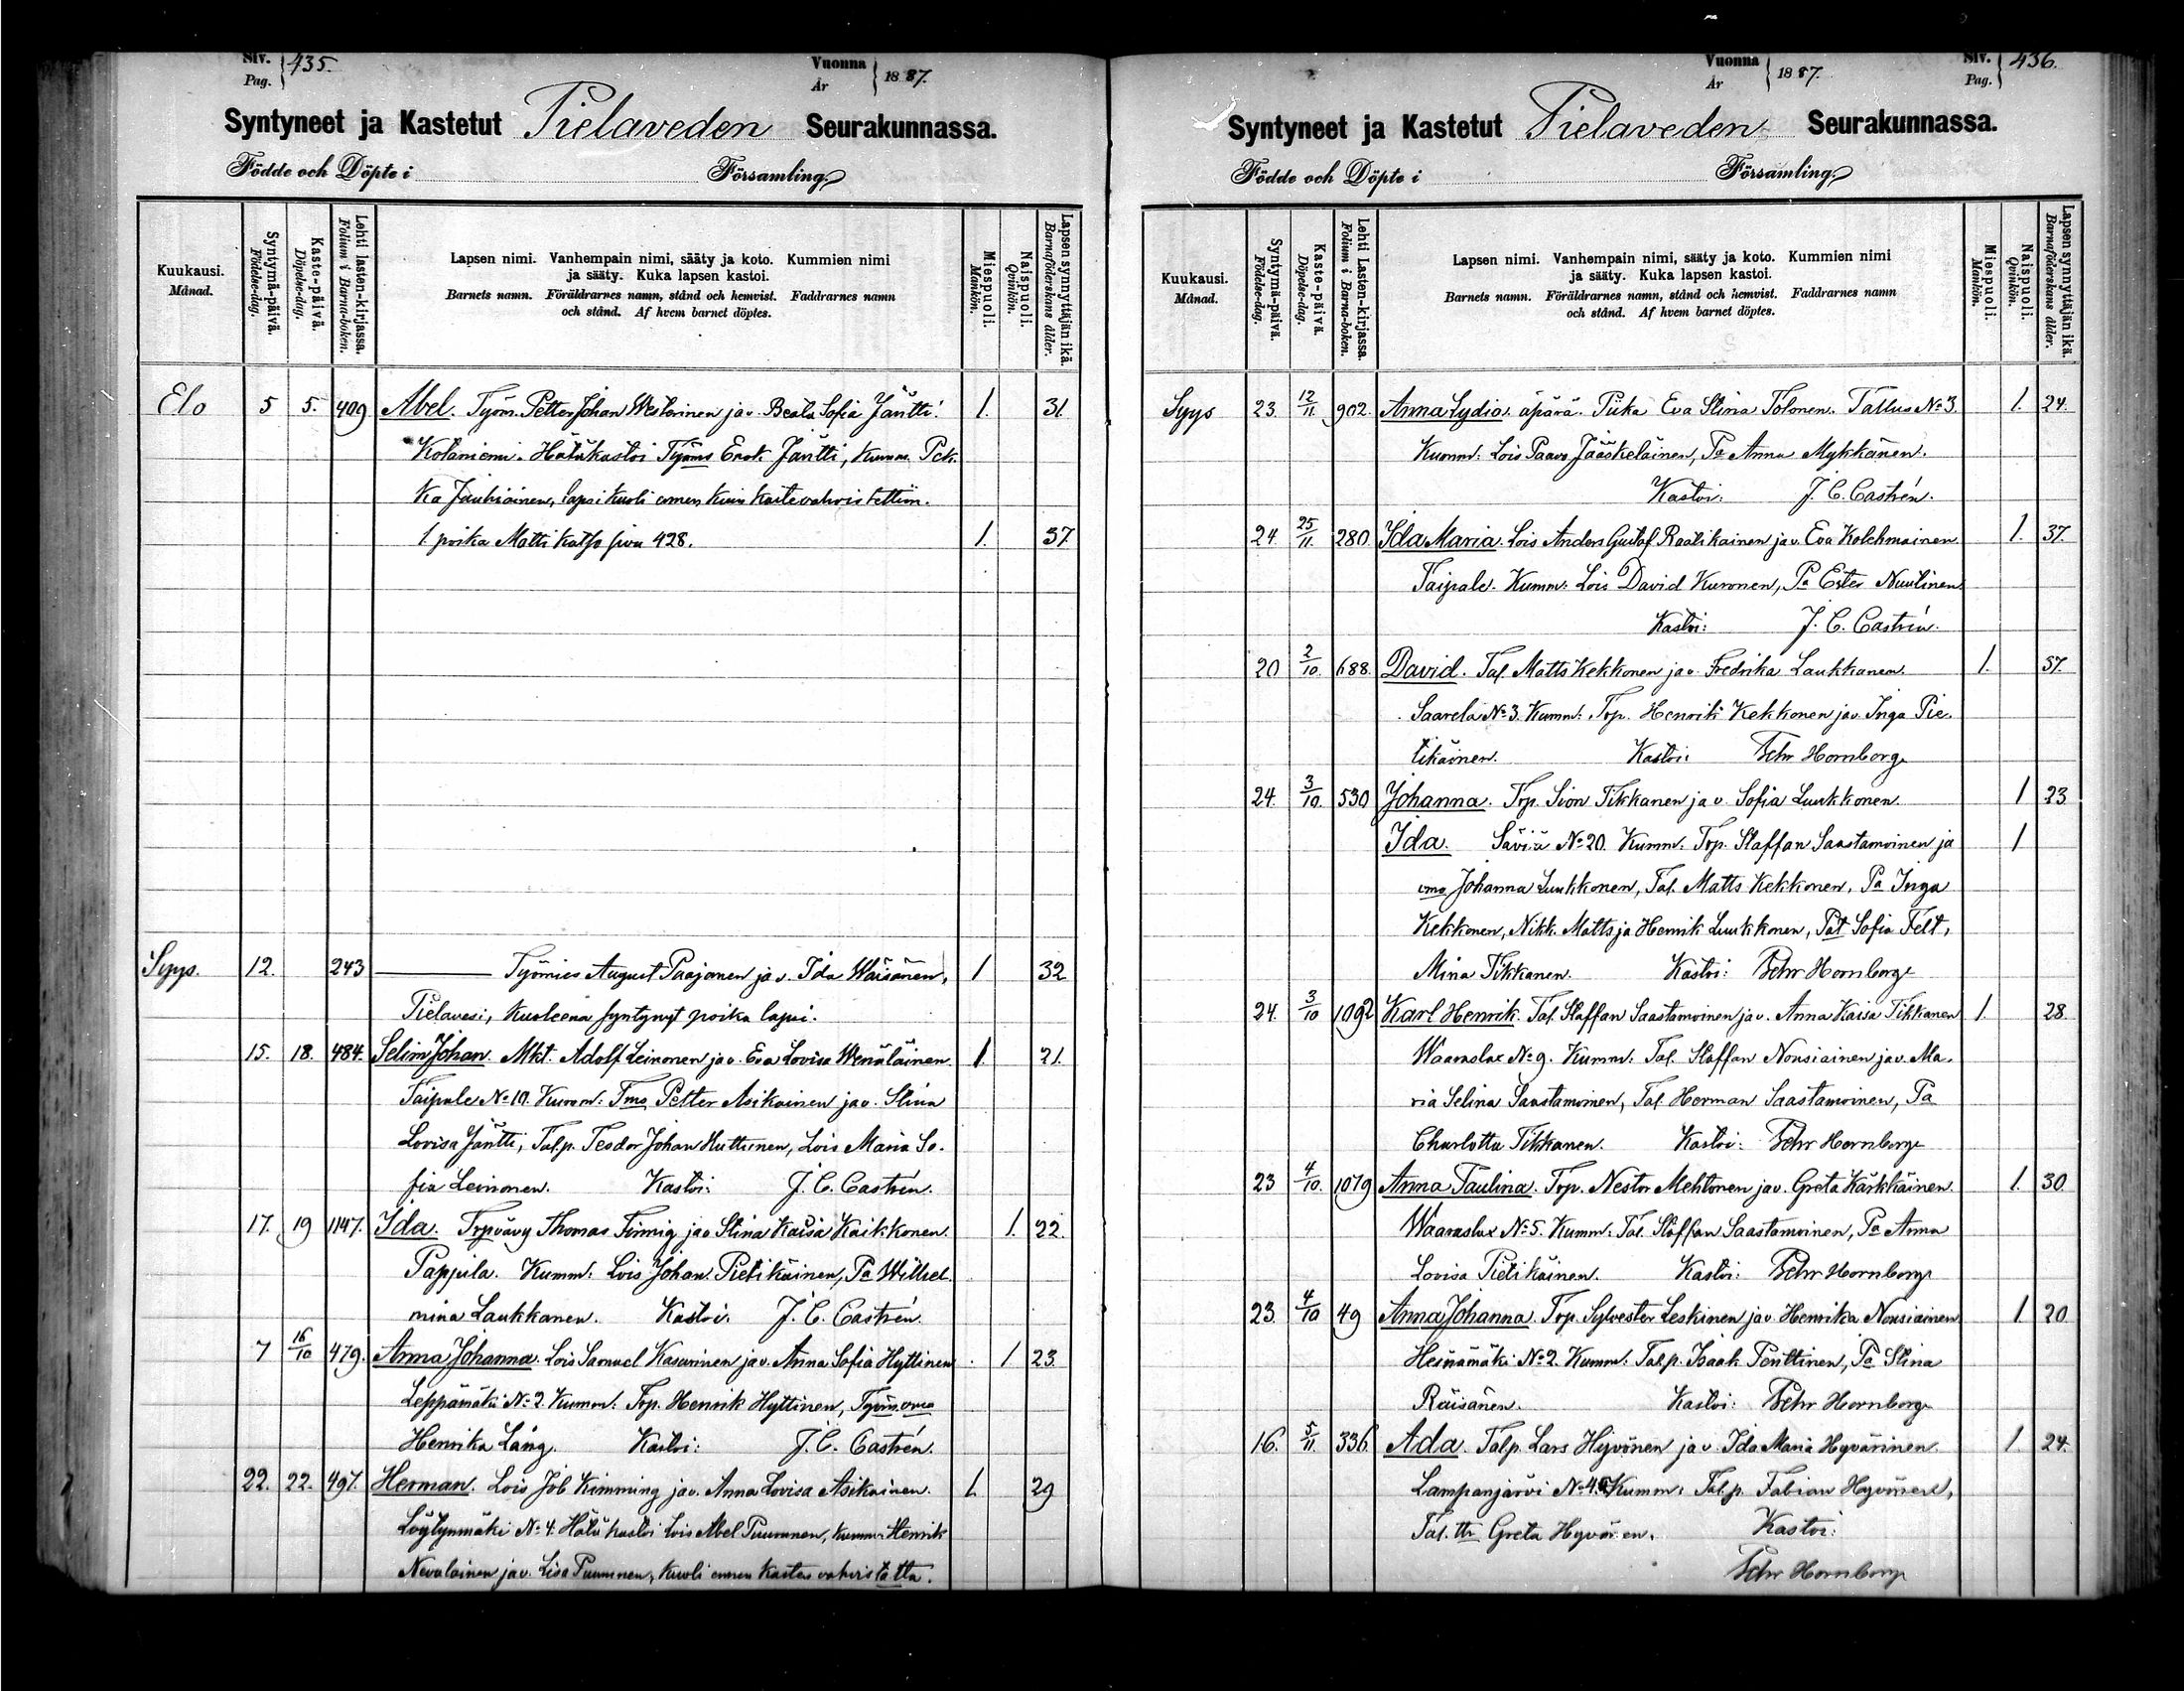 Siv. Pag. 435.
Vuonna År 1887.
Syntyneet ja Kastetut Pielaveden Seurakunnassa.
Födde och Döpte i Församling.
Kuukausi. Månad.
Syntymä-päivä. Födelse-dag.
Kaste-päivä. Döpelse-dag.
Lehti lasten-kirjassa. Folium i Barna-boken.
Lapsen nimi. Vanhempain nimi, sääty ja koto. Kummien nimi
ja sääty. Kuka lapsen kastoi.
Barnets namn. Föräldrarnes namn, stånd och hemvist. Faddrarnes namn
och stånd. Af hvem barnet döptes.
Miespuoli. Mankön.
Naispuoli. Qvinkön.
Lapsen synnyttäjän ikä. Barnaföderskans ålder.
Elo 5 5. 409 Abel. Työm. Petter Johan Westerinen ja v. Beata Sofia Jäntti. 1. 31.
Kotaniemi. Hätäkastoi Työms Enok Jäntti, Kumm. Pek.
ka Jauhiainen, lapsi kuoli ennen kuin kaste vahvistettiin.
1 poika Matti katso sivu 428. 1. 37.
Syys. 12. 243 Työmies August Paajanen ja v. Ida Wäisänen, 1 32
Pielavesi, kuoleena syntynyt poika lapsi.
15. 18. 484. Selim Johan. Mkt. Adolf Leinonen ja v. Eva Lovisa Wenäläinen. 1. 21.
Taipale No 10. Kumm: Tms Petter Asikainen ja v. Stina
Lovisa Jäntti, Tal.p. Teodor Johan Huttunen, Lois Maria So-
fia Leinonen. Kastoi: J. C. Castrén.
17. 19 1147. Ida. Torpvävy Thomas Timmig ja v Stina Kaisa Kaikkonen. 1. 22.
Pajula. Kumm: Lois Johan Pietikäinen, Pa Wilhel.
mina Laukkanen. Kastoi: J. C. Castrén
7 16/10 479. Anna Johanna. Lois Samuel Kasurinen ja v. Anna Sofia Hyttinen 1 23.
Leppämäki No 2. Kumm: Trp. Henrik Hyttinen, Työm.oma
Henrika Lång. Kastoi: J. C. Castrén.
22. 22. 497. Herman. Lois Job Kimming ja v. Anna Lovisa Asikainen. 1. 29
Löytynmäki No 4. Hätä kastoi Lois Abel Puumnen, kumm: Henrik
Nevalainen ja v. Lisa Puumnen, kuoli ennen kasteen vahvistatta.
Vuonna År 1887.
Siv. Pag. 436.
Syntyneet ja Kastetut Pielaveden Seurakunnassa.
Födde och Döpte i Församling.
Kuukausi. Månad.
Syntymä-päivä. Födelse-dag.
Kaste-päivä. Döpelse-dag.
Lehti Lasten-kirjassa. Folium i Barna-boken.
Lapsen nimi. Vanhempain nimi, sääty ja koto. Kummien nimi
ja sääty. Kuka lapsen kastoi.
Barnets namn. Föräldrarnes namn, stånd och hemvist. Faddrarnes namn
och stånd. Af hvem barnet döptes.
Miespuoli. Mankön.
Naispuoli. Qvinkön.
Lapsen synnyttäjän ikä. Barnaföderskans ålder.
Syys 23. 12/11. 902. Anna Lydia. äpärä. Piika Eva Stina Tolonen. Tallus No 3. 1. 24.
Kumm: Lois Paavo Jääskeläinen, Pa Anna Mykkänen.
Kastoi: J. C. Castrén.
24. 25/11. 280. Ida Maria. Lois Anders Gustaf Raatikainen ja v. Eva Kolehmainen. 1. 37.
Taipale. Kumm: Lois David Kuronen, Pa Ester Nuutinen
Kastoi: J. C. Castrén.
20 2/10. 688. David. Tal. Matts Kekkonen ja v. Fredrika Laukkanen. 1. 37.
Saarela No 3. Kumm: Trp. Henrik Kekkonen ja v. Inga Pie.
tikäinen. Kastoi: Fehr Hornborg
24. 3/10. 530 Johanna. Trp. Sion Tikkanen ja v. Sofia Luukkonen. 1 23
Ida. Säviä No 20. Kumm: Trp. Staffan Saastamoinen ja 1
vmo Johanna Luukkonen, Tal. Matts Kekkonen, Pa Inga
Kekkonen, Nikk. Matts ja Henrik Luukkonen, Pat Sofia Felt,
Mina Tikkanen. Kastoi: Fehr Hornborg
24. 3/10 1092 Karl Henrik. Tal. Staffan Saastamoinen ja v. Anna Kaisa Tikkanen 1. 28
Waaraslax No 9. Kumm: Tal. Staffan Nousiainen ja v. Ma.
ria Selina Saastamoinen, Tal. Herman Saastamoinen, Pa
Charlotta Tikkanen. Kastoi: Fehr Hornborg
23 4/10. 1079 Anna Paulina. Trp. Nestor Mehtonen ja v. Greta Kärkkäinen. 1. 30.
Waaraslax No 5. Kumm: Tal. Staffan Saastamoinen, Pa Anna
Lovisa Pietikäinen. Kastoi: Fehr Hornborg
23. 4/10 49 Anna Johanna. Trp. Sylvester Leskinen ja v. Henrika Nousiainen 1 20
Heinämäki No 2. Kumm: Tal.p. Isaak Ponttinen, Pa Stina
Räisänen. Kastoi: Fehr Hornborg
16. 5/11. 336. Ada. Talp. Lars Hyvönen ja v. Ida Maria Hyvärinen. 1. 24.
Lampaanjärvi No 4. Kumm: Tal.p. Fabian Hyvönen,
Tal. ttr Greta Hyvönen. Kastoi:
Fehr Hornborg